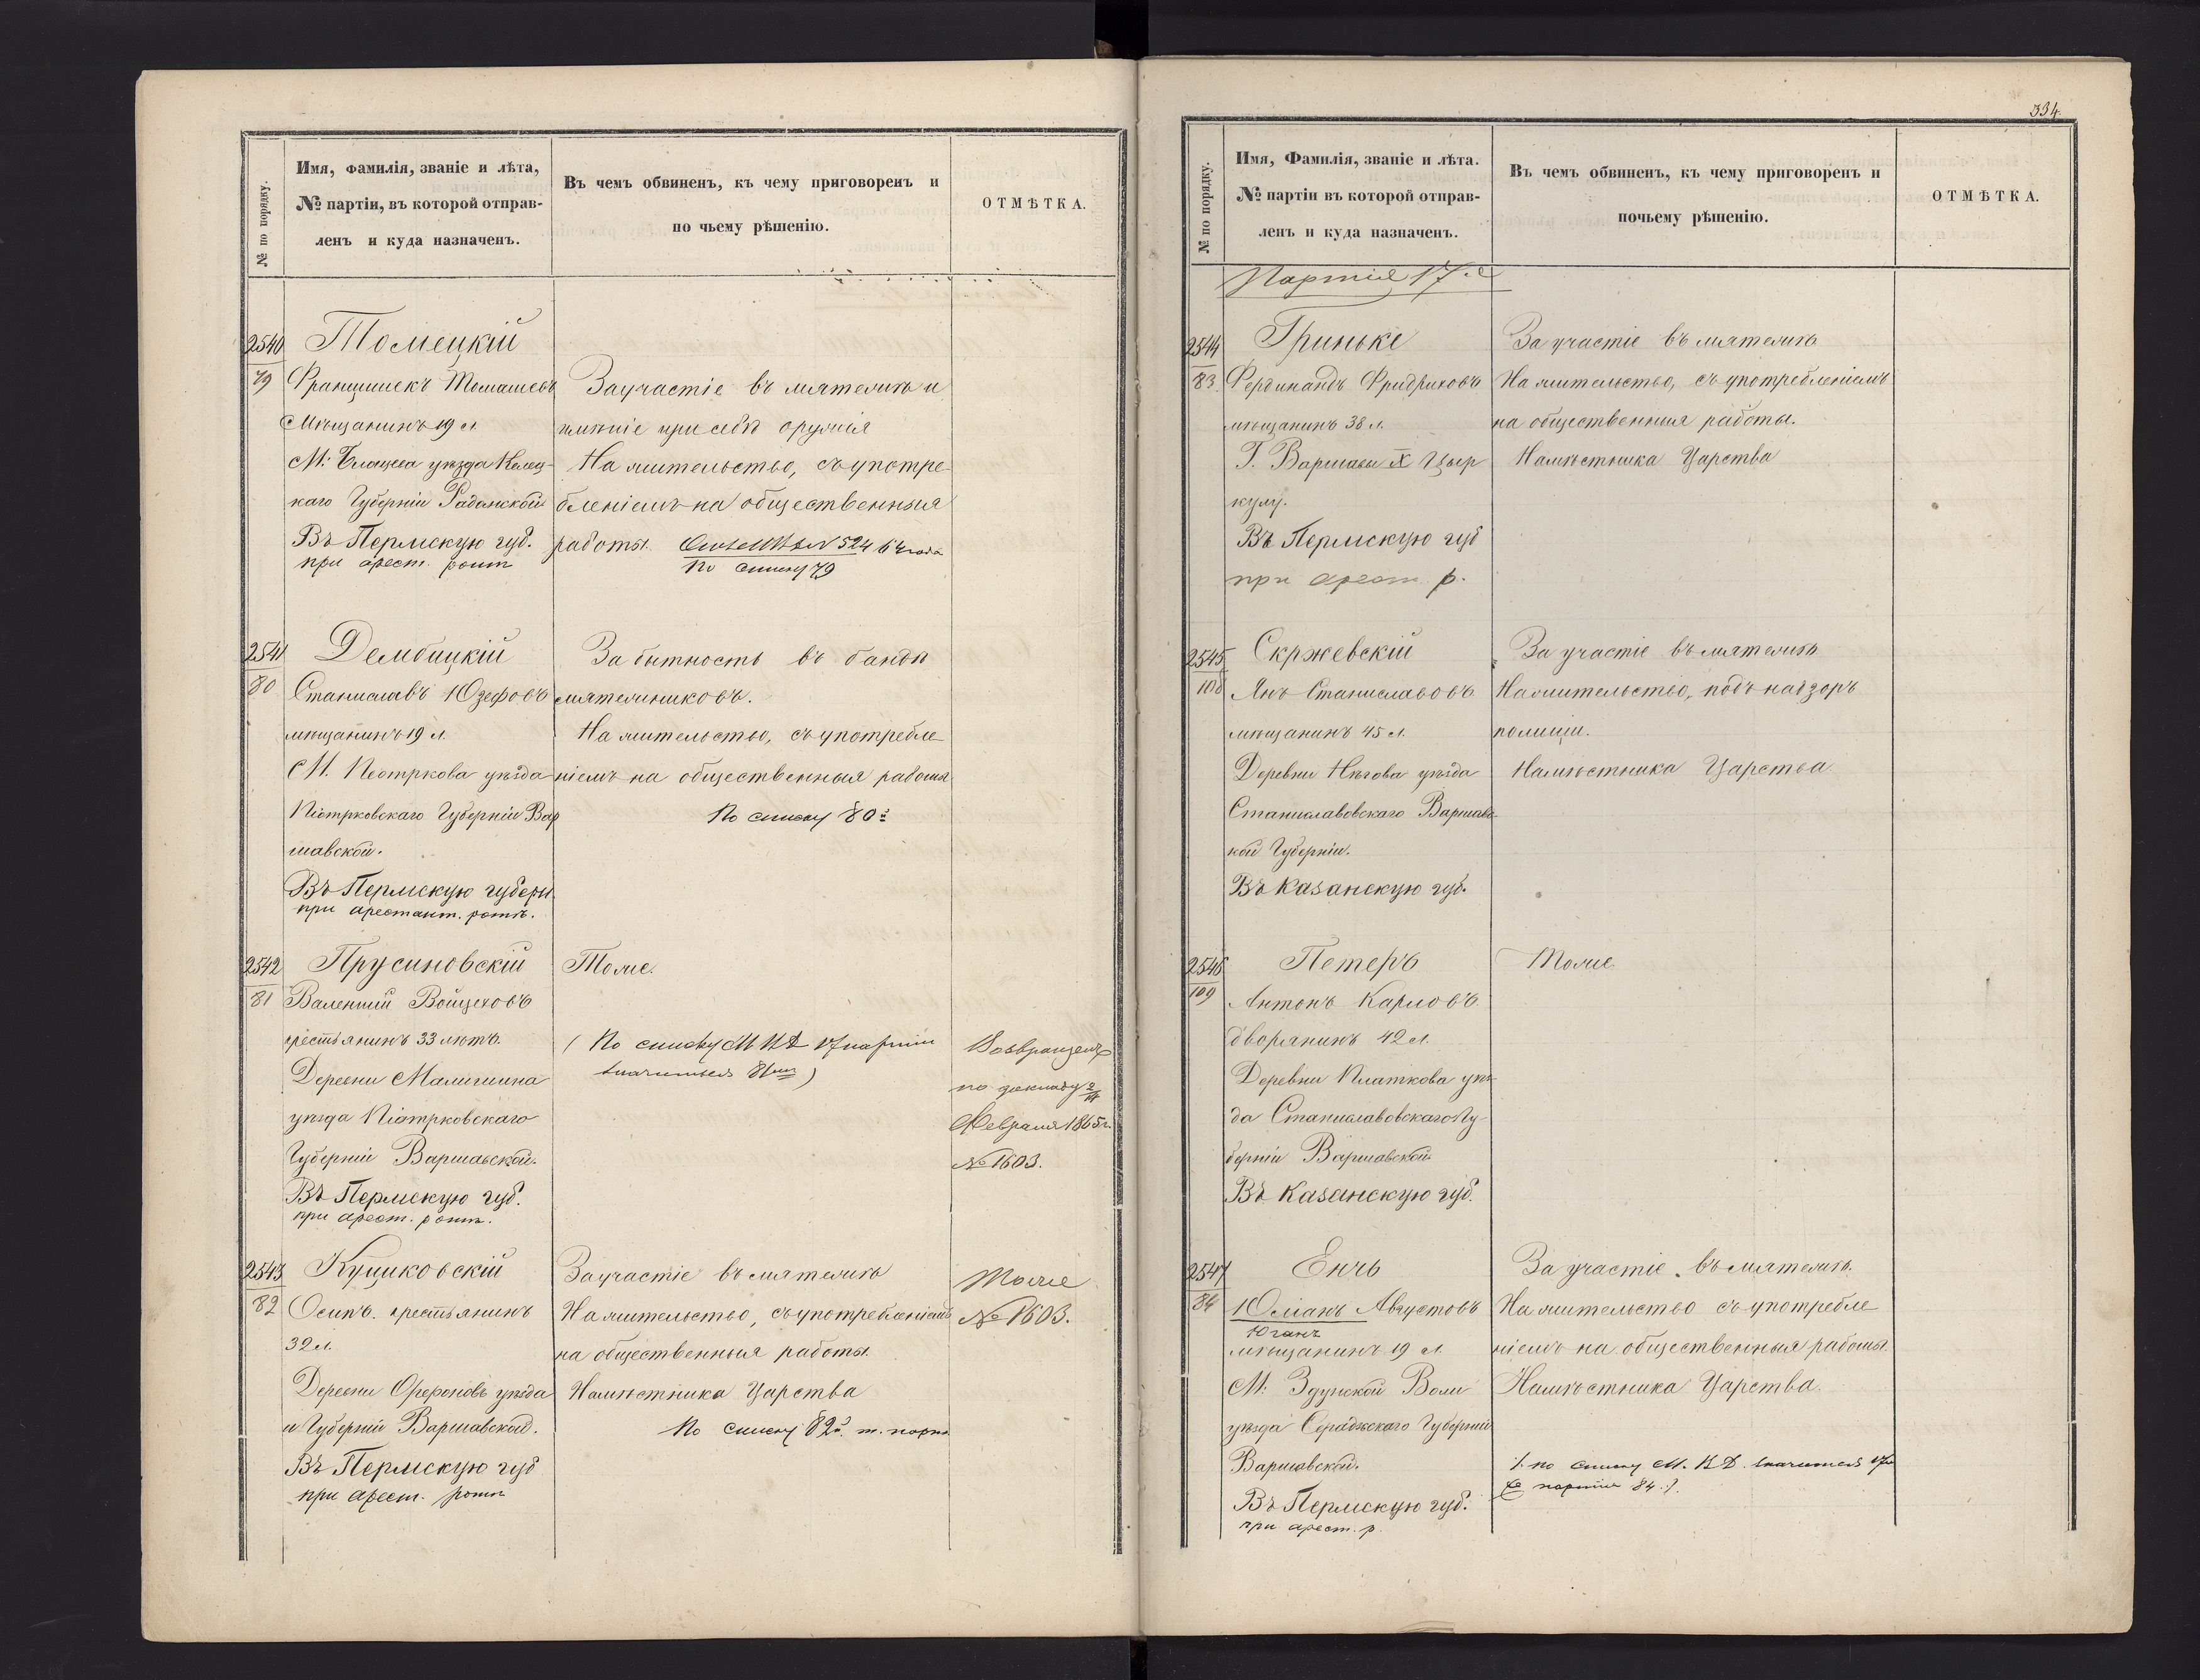 № по порядку.
Имя, фамилія, званіе и лѣта,
№ партіи, въ которой отправ-
ленъ и куда назначенъ.
Въ чемъ обвиненъ, къ чему приговоренъ и
по чьему рѣшенію.
ОТМѢТКА.
2540
79
Томецкій
Францишекъ Томашевъ
Мѣщанинъ 19 л
уѣзда Келец-
каго Губерніи Радомской
Въ Пермскую губ.
при арест. ротѣ
За участіе въ мятежѣ и
имѣніе при себѣ оружія
На жительство, съ употре-
бленіемъ на общественныя
работы. № 524 64 года
По списку 79
2541
80
Дембицкій
Станиславъ Юзефовъ
мѣщанинъ 19 л.
М. Піотркова уѣзда
Піотрковскаго Губерніи Вар
шавской.
Въ Пермскую губерн.
при арестант. ротѣ.
За бытность въ бандѣ
мятежниковъ.
На жительство, съ употребле
ніемъ на общественныя работы
По списку 80й
2542
81
Прусиновскій
Валентій Войцеховъ
крестьянинъ 33 лѣтъ.
Деревни
уѣзда Піотрковскаго
Губерніи Варшавской.
Въ Пермскую губ.
при арест. ротѣ.
Тоже.
( По списку М В Д 17 партіи
значится 81мъ )
Возвращенъ
по докладу 2/14
Февраля 1865 г.
№ 1603.
2543
82
Куциковскій
Осипъ. крестьянинъ
32 л.
Деревни уѣзда
и Губерніи Варшавской.
Въ Пермскую губ
при арест. ротѣ
За участіе въ мятежѣ
На жительство, съ употребленіемъ
на общественныя работы.
Намѣстника Царства
По списку 82й т. парт.
Тоже
№ 1603.
334
№ по порядку.
Имя, Фамилія, званіе и лѣта.
№ партіи въ которой отправ-
ленъ и куда назначенъ.
Въ чемъ обвиненъ, къ чему приговоренъ и
почьему рѣшенію.
ОТМѢТКА.
Партія 17я
2544
83
Гриньке
Фердинандъ Фридриховъ
мѣщанинъ 38 л.
Г. Варшавы X Цыр
кулу.
Въ Пермскую губ
при арест. р.
За участіе въ мятежѣ
На жительство, съ употребленіемъ
на общественныя работы.
Намѣстника Царства
2545
108
Скржевскій
Янъ Станиславовъ
мѣщанинъ 45 л.
Деревни Нѣгова уѣзда
Станиславовскаго Варшавс-
кой Губерніи.
Въ Казанскую губ.
За участіе въ мятежѣ
На жительство, подъ надзоръ
полиціи.
Намѣстника Царства
2546
109
Петеръ
Антонъ Карловъ
дворянинъ 42 л.
Деревни Платкова уѣз-
да Станиславовскаго Гу-
берніи Варшавской
Въ Казанскую губ.
Тоже
2547
84
Енчъ
Юліанъ Августовъ
Юганъ
мѣщанинъ 19 л
М. Здунской Воли
уѣзда Серадзскаго Губерніи
Варшавской.
Въ Пермскую губ.
при арест. р.
За участіе въ мятежѣ.
На жительство съ употребле
ніемъ на общественныя работы.
Намѣстника Царства.
/. по списку М. В. Д. значится 17й
партіи 84 ./.